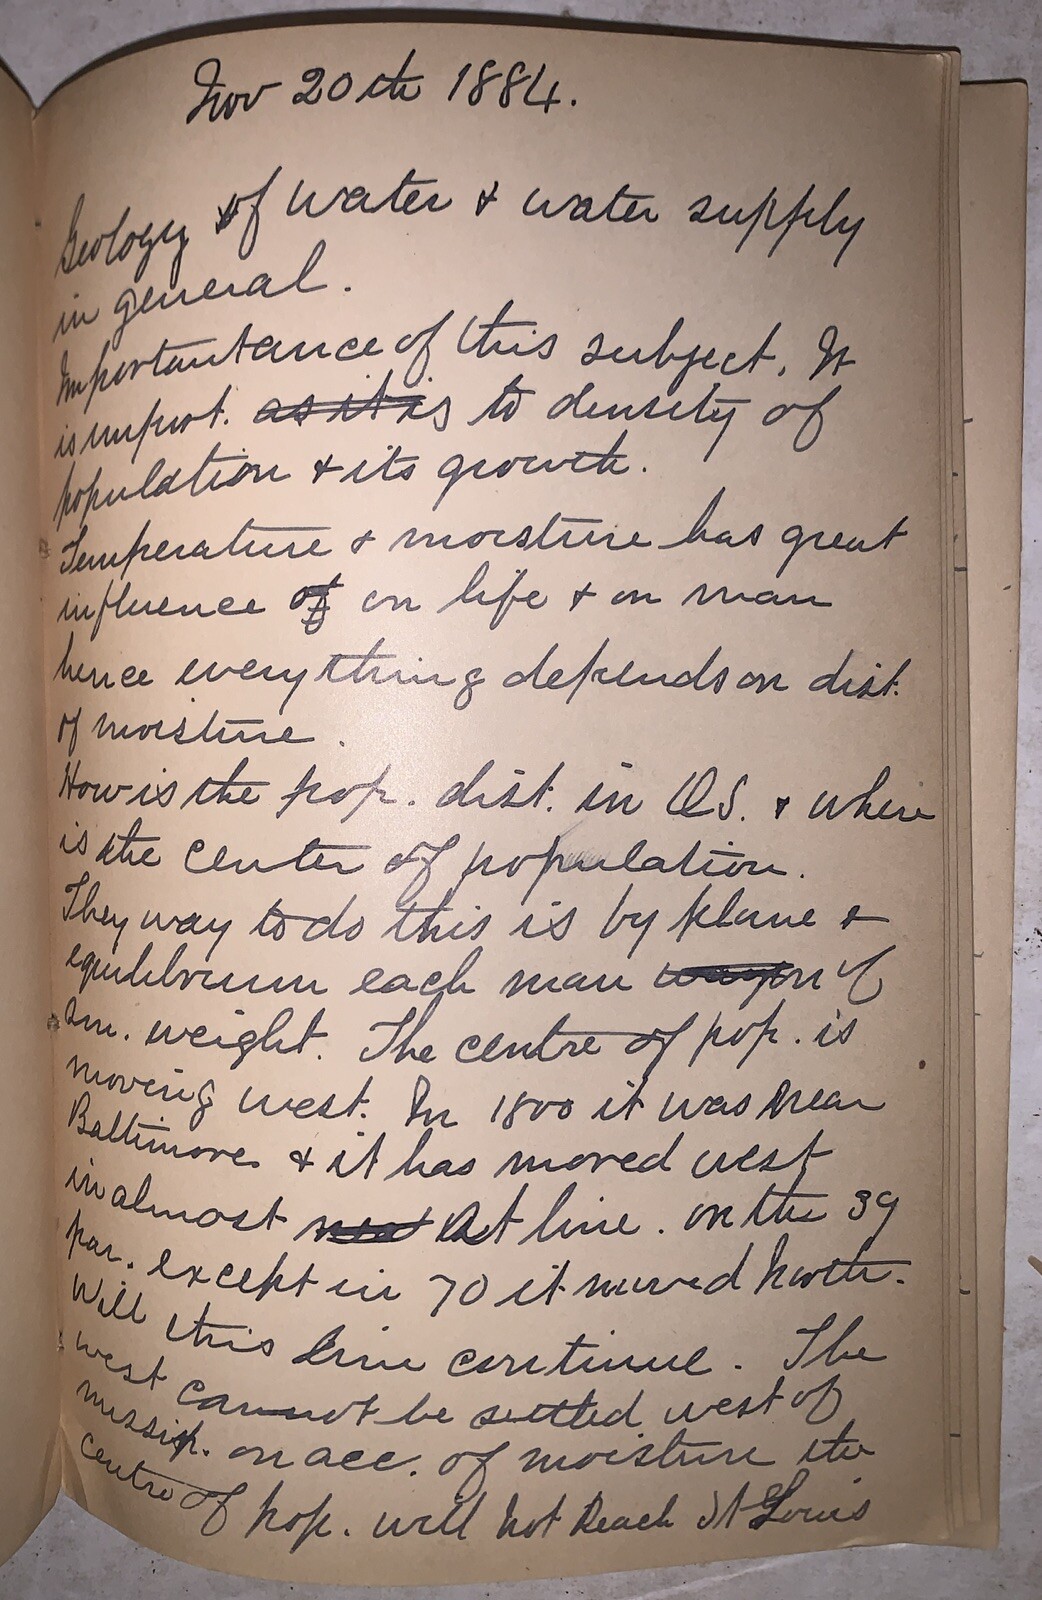 Nov 20th 1884.
Geology of water & water supply
in general.
Importantance of this subject. It
is import. as it is to density of
population & its growth.
Temperature & moisture has great
influence of on life & on man
hence everything depends on dist.
of moisture.
How is the pop. dist. in US. & where
is the center of population.
They way to do this is by plane &
equilibrium each man of
sm. weight. The centre of pop. is
moving west. In 1800 it was near
Baltimore & it has moved west
in almost st line. on the 39
par. except in 70 it moved north.
Will this line continue. The
west cannot be settled west of
missip. on acc. of moisture the
centre of pop. will not reach St Louis